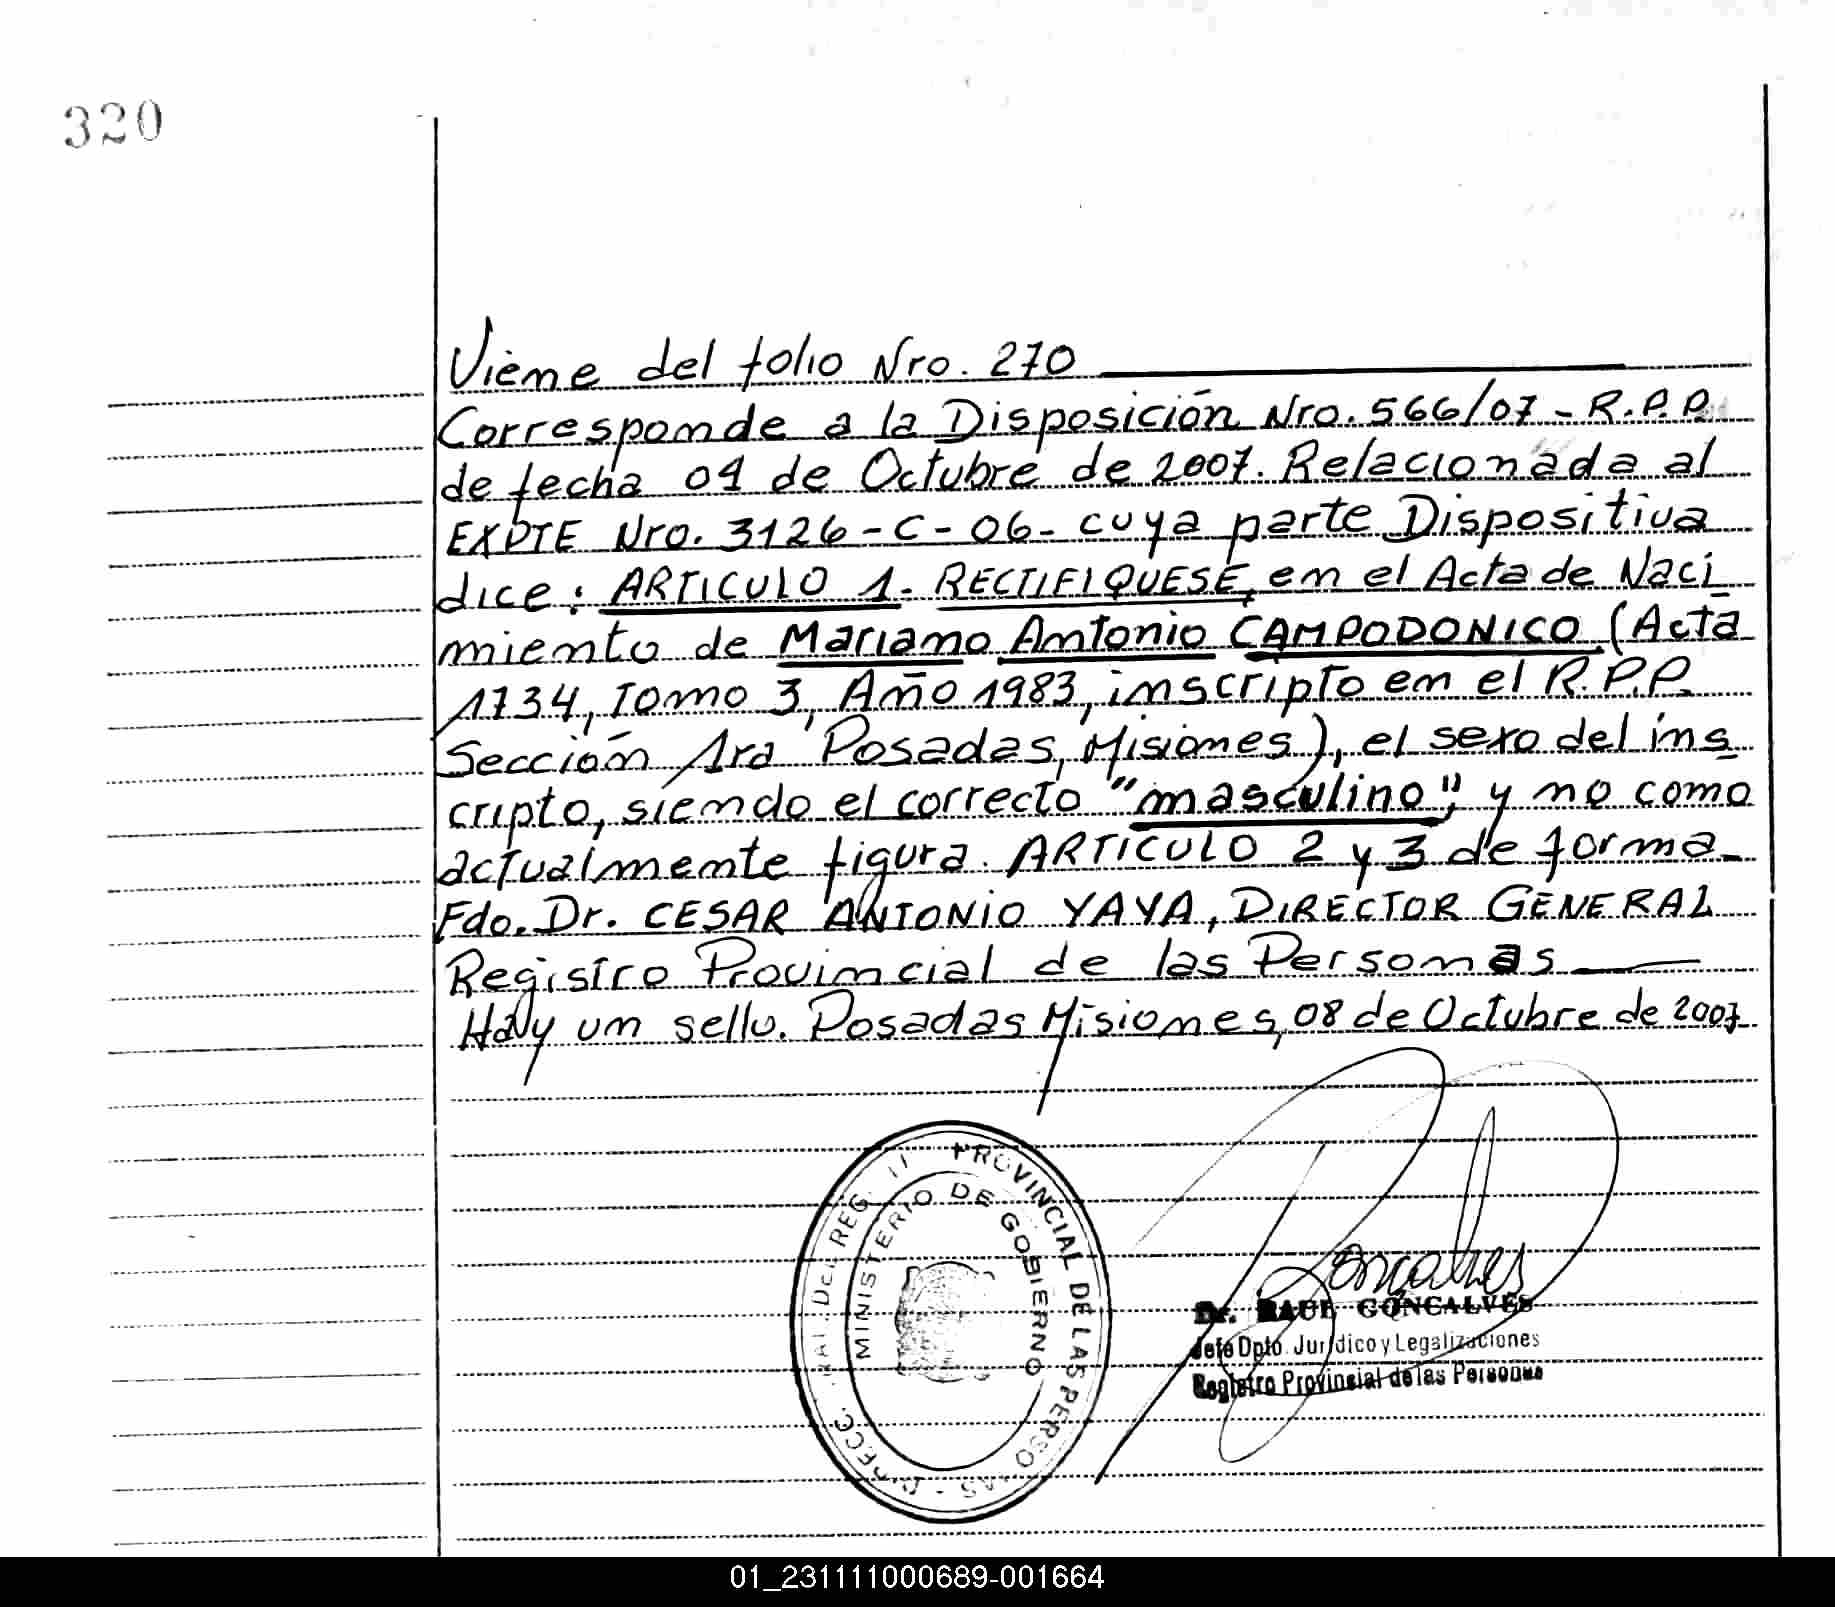 320
Viene del folio Nro. 270
Corresponde a la Disposición Nro. 566/07 - R.P.P.
de fecha 04 de Octubre de 2007. Relacionada al
EXPTE Nro. 3126 - C - 06 - cuya parte Dispositiva
dice: ARTICULO 1. RECTIFIQUESE, en el Acta de Naci
miento de Mariano Antonio CAMPODONICO (Acta
1734, Tomo 3, Año 1983, inscripto en el R.P.P.
Sección 1ra Posadas, Misiones), el sexo del ins
cripto, siendo el correcto "masculino", y no como
actualmente figura. ARTICULO 2 y 3 de forma_
Fdo. Dr. CESAR ANTONIO YAYA, DIRECTOR GENERAL
Registro Provincial de las Personas
Hay un sello. Posadas Misiones, 08 de Octubre de 2007
PROVINCIAL DE LAS
MINISTERIO DE GOBIERNO
Goncalves
Dr. RAUL GONCALVES
Jefe Dpto. Jurídico y Legalizaciones
Registro Provincial de las Personas
01_231111000689-001664